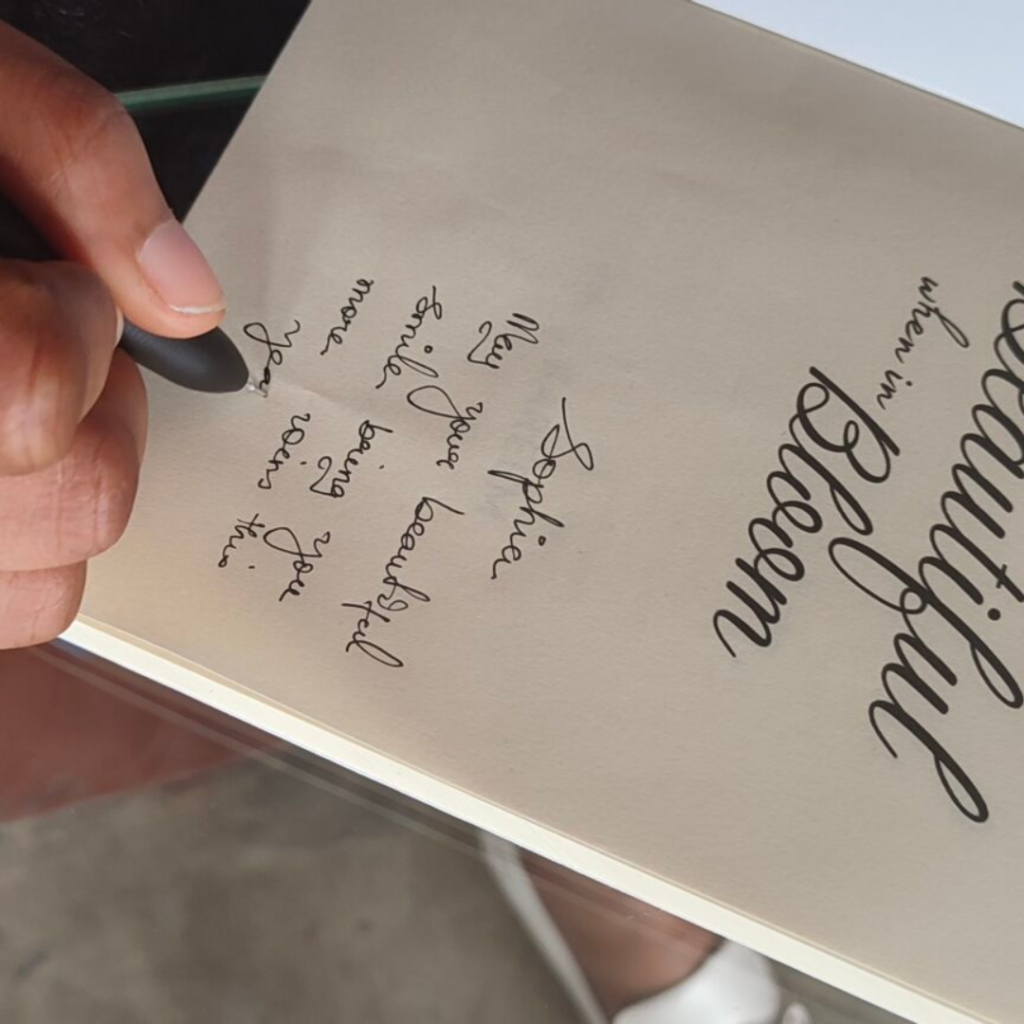 Beautiful
when in
Bloom
Sophie,
May your beautiful
smile being you
more wins this
year